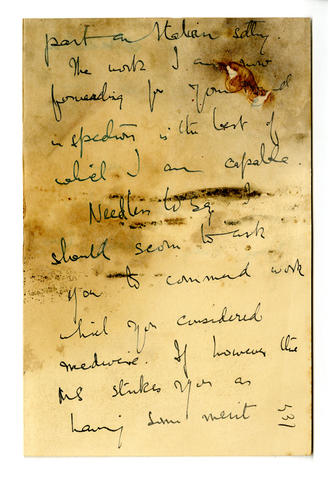 part an Italian setting.
The work I am now
forwarding for your
inspection is the best of
which I am capable.
Needless to say I
should scorn to ask
you to commend work
which you considered
mediocre. If however the
MS strikes you as
having some merit